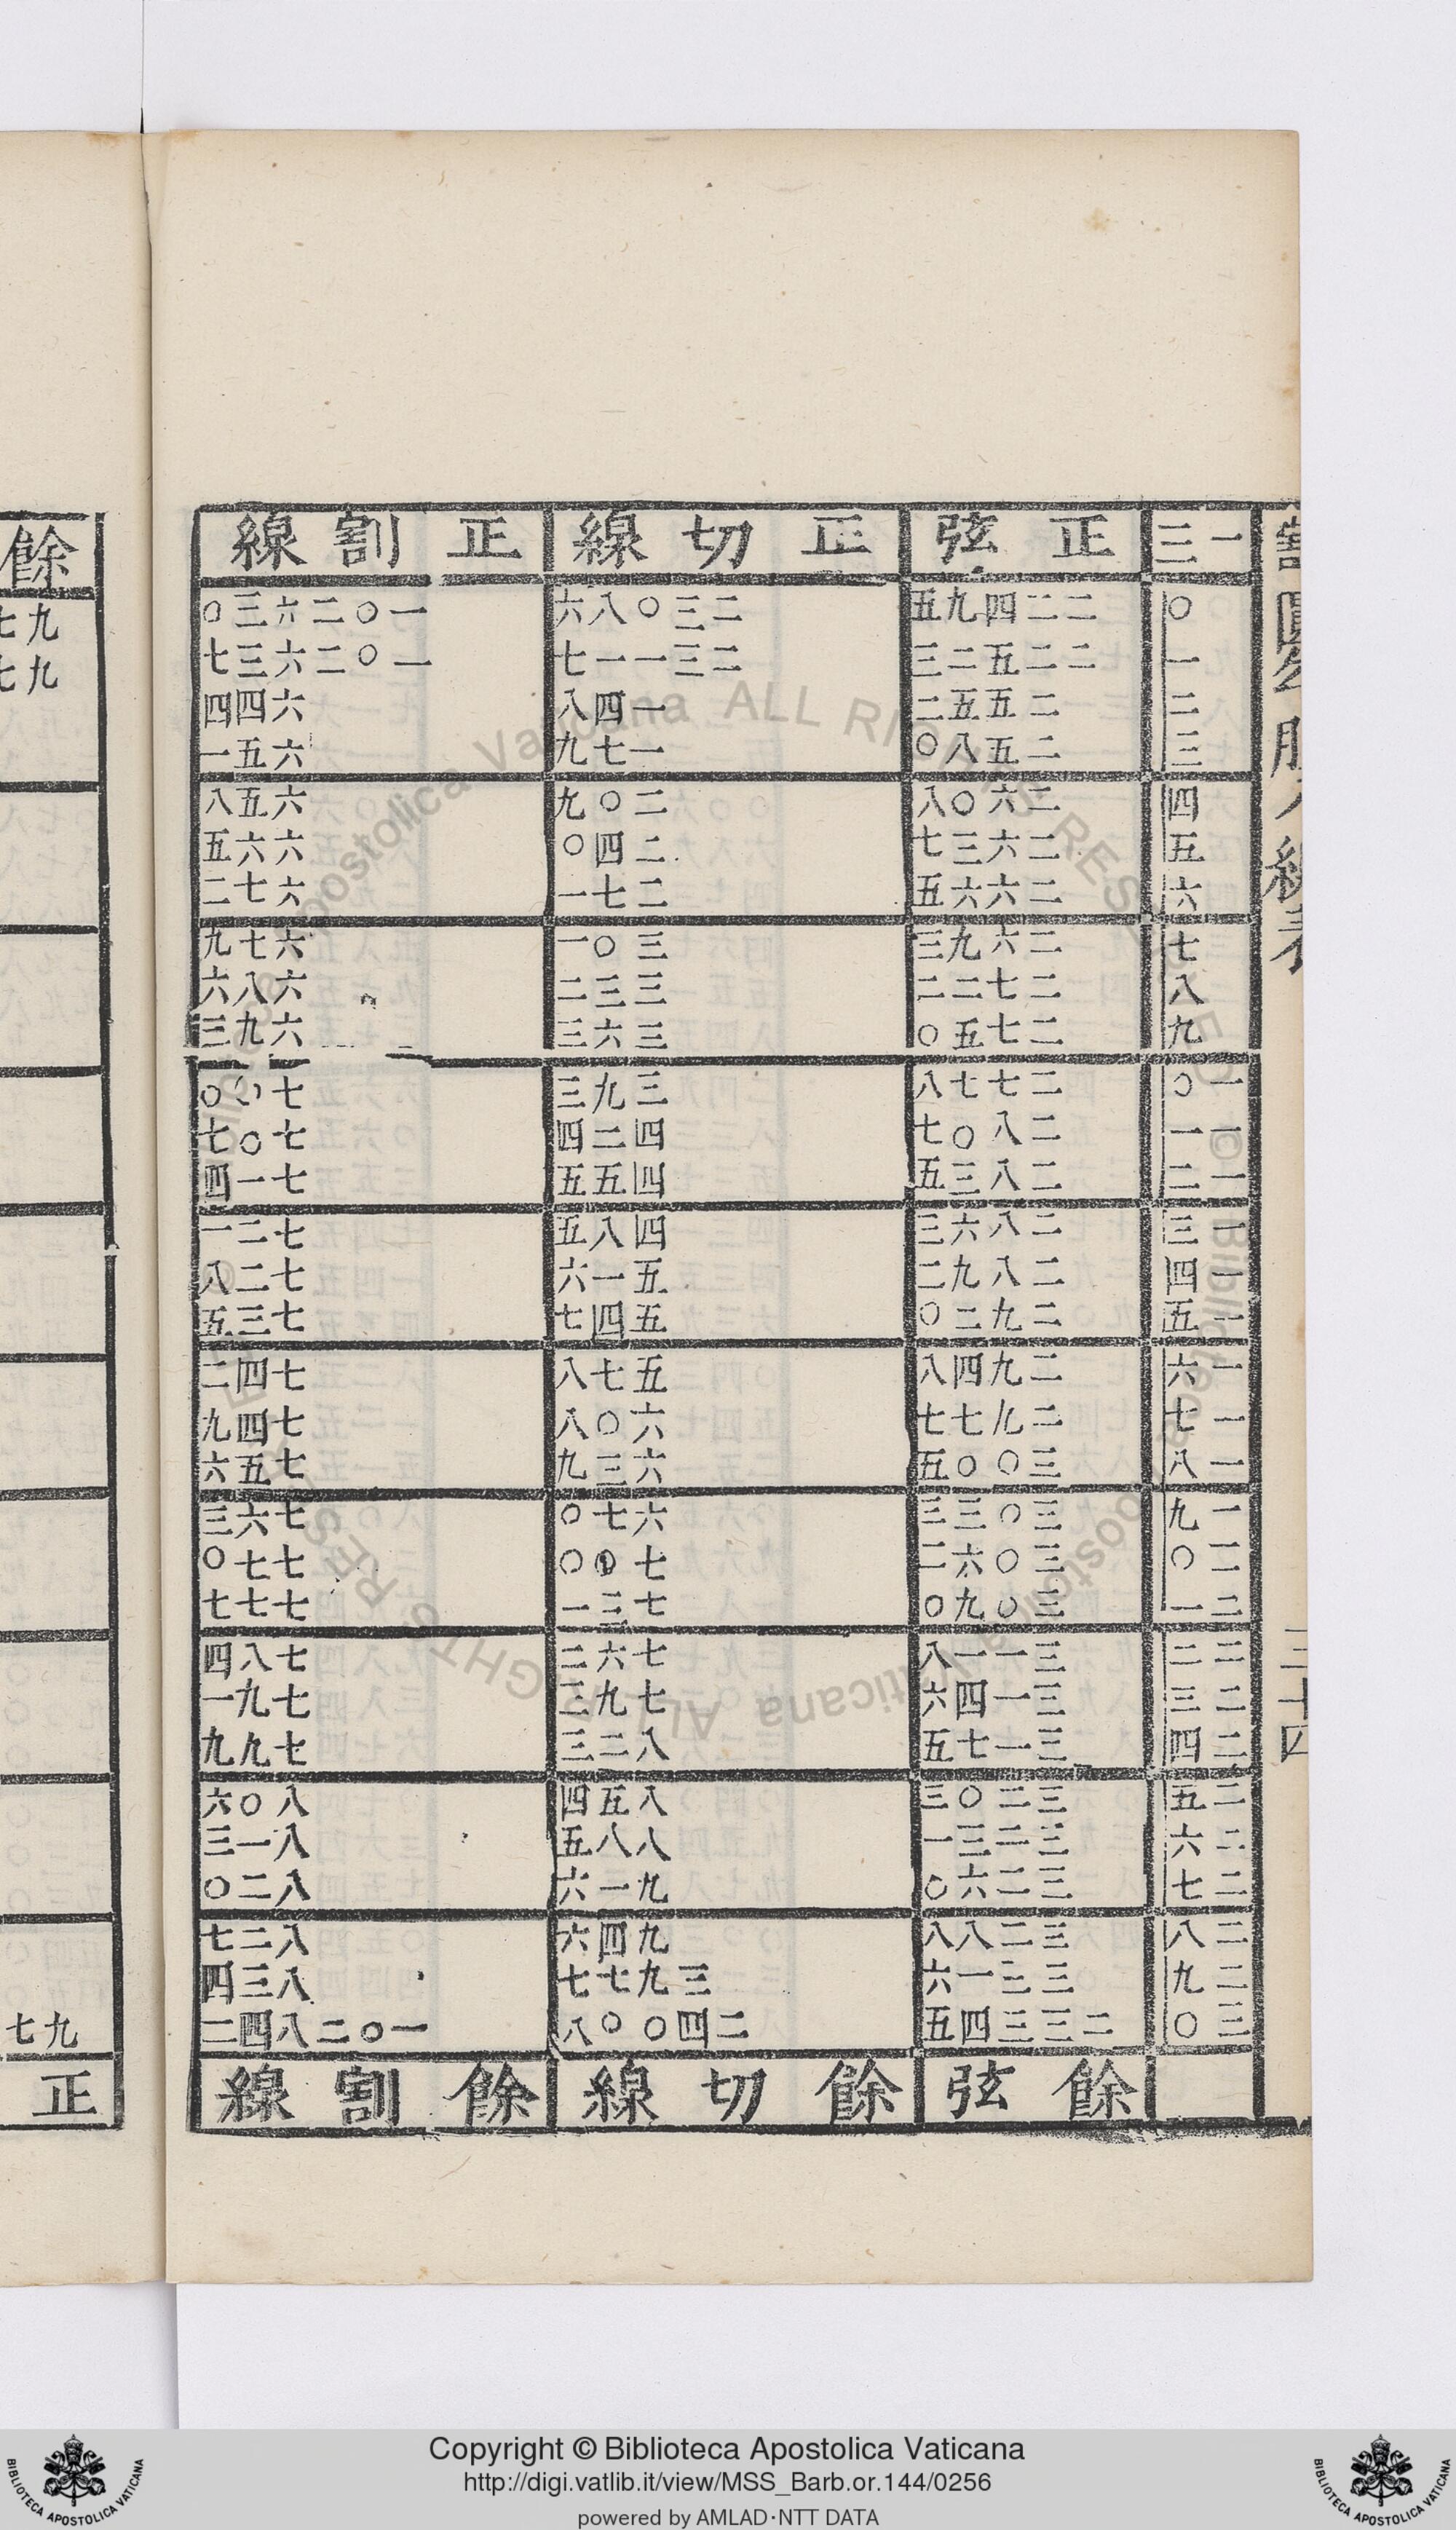 割圓勾股八線表
三十四
一三 正弦 正切線 正割線
〇 二二四九五 二三〇八六 一〇二六三〇
一 二二五二三 二三一一七 一〇二六三七
二 二五五二 一四八 六四四
三 二五八〇 一七九 六五一
四 二六〇八 二〇九 六五八
五 二六三七 二四〇 六六五
六 二六六五 二七一 六七二
七 二六九三 三〇一 六七九
八 二七二二 三三二 六八六
九 二七五〇 三六三 六九三
一〇 二七七八 三九三 七〇〇
一一 二八〇七 四二四 七〇七
一二 二八三五 四五五 七一四
一三 二八六三 四八五 七二一
一四 二八九二 五一六 七二八
一五 二九二〇 五四七 七三五
一六 二九四八 五七八 七四二
一七 二九七七 六〇八 七四九
一八 三〇〇五 六三九 七五六
一九 三〇三三 六七〇 七六三
二〇 三〇六二 七〇〇 七七〇
二一 三〇九〇 七三一 七七七
二二 三一一八 七六二 七八四
二三 三一四六 七九三 七九一
二四 三一七五 八二三 七九九
二五 三二〇三 八五四 八〇六
二六 三二三一 八八五 八一三
二七 三二六〇 九一六 八二〇
二八 三二八八 九四六 八二七
二九 三三一六 三九七七 八三四
三〇 二三三四五 二四〇〇八 一〇二八四二
餘弦 餘切線 餘割線
餘
九七
九七
九七
正
Copyright © Biblioteca Apostolica Vaticana
http://digi.vatlib.it/view/MSS_Barb.or.144/0256
powered by AMLAD·NTT DATA